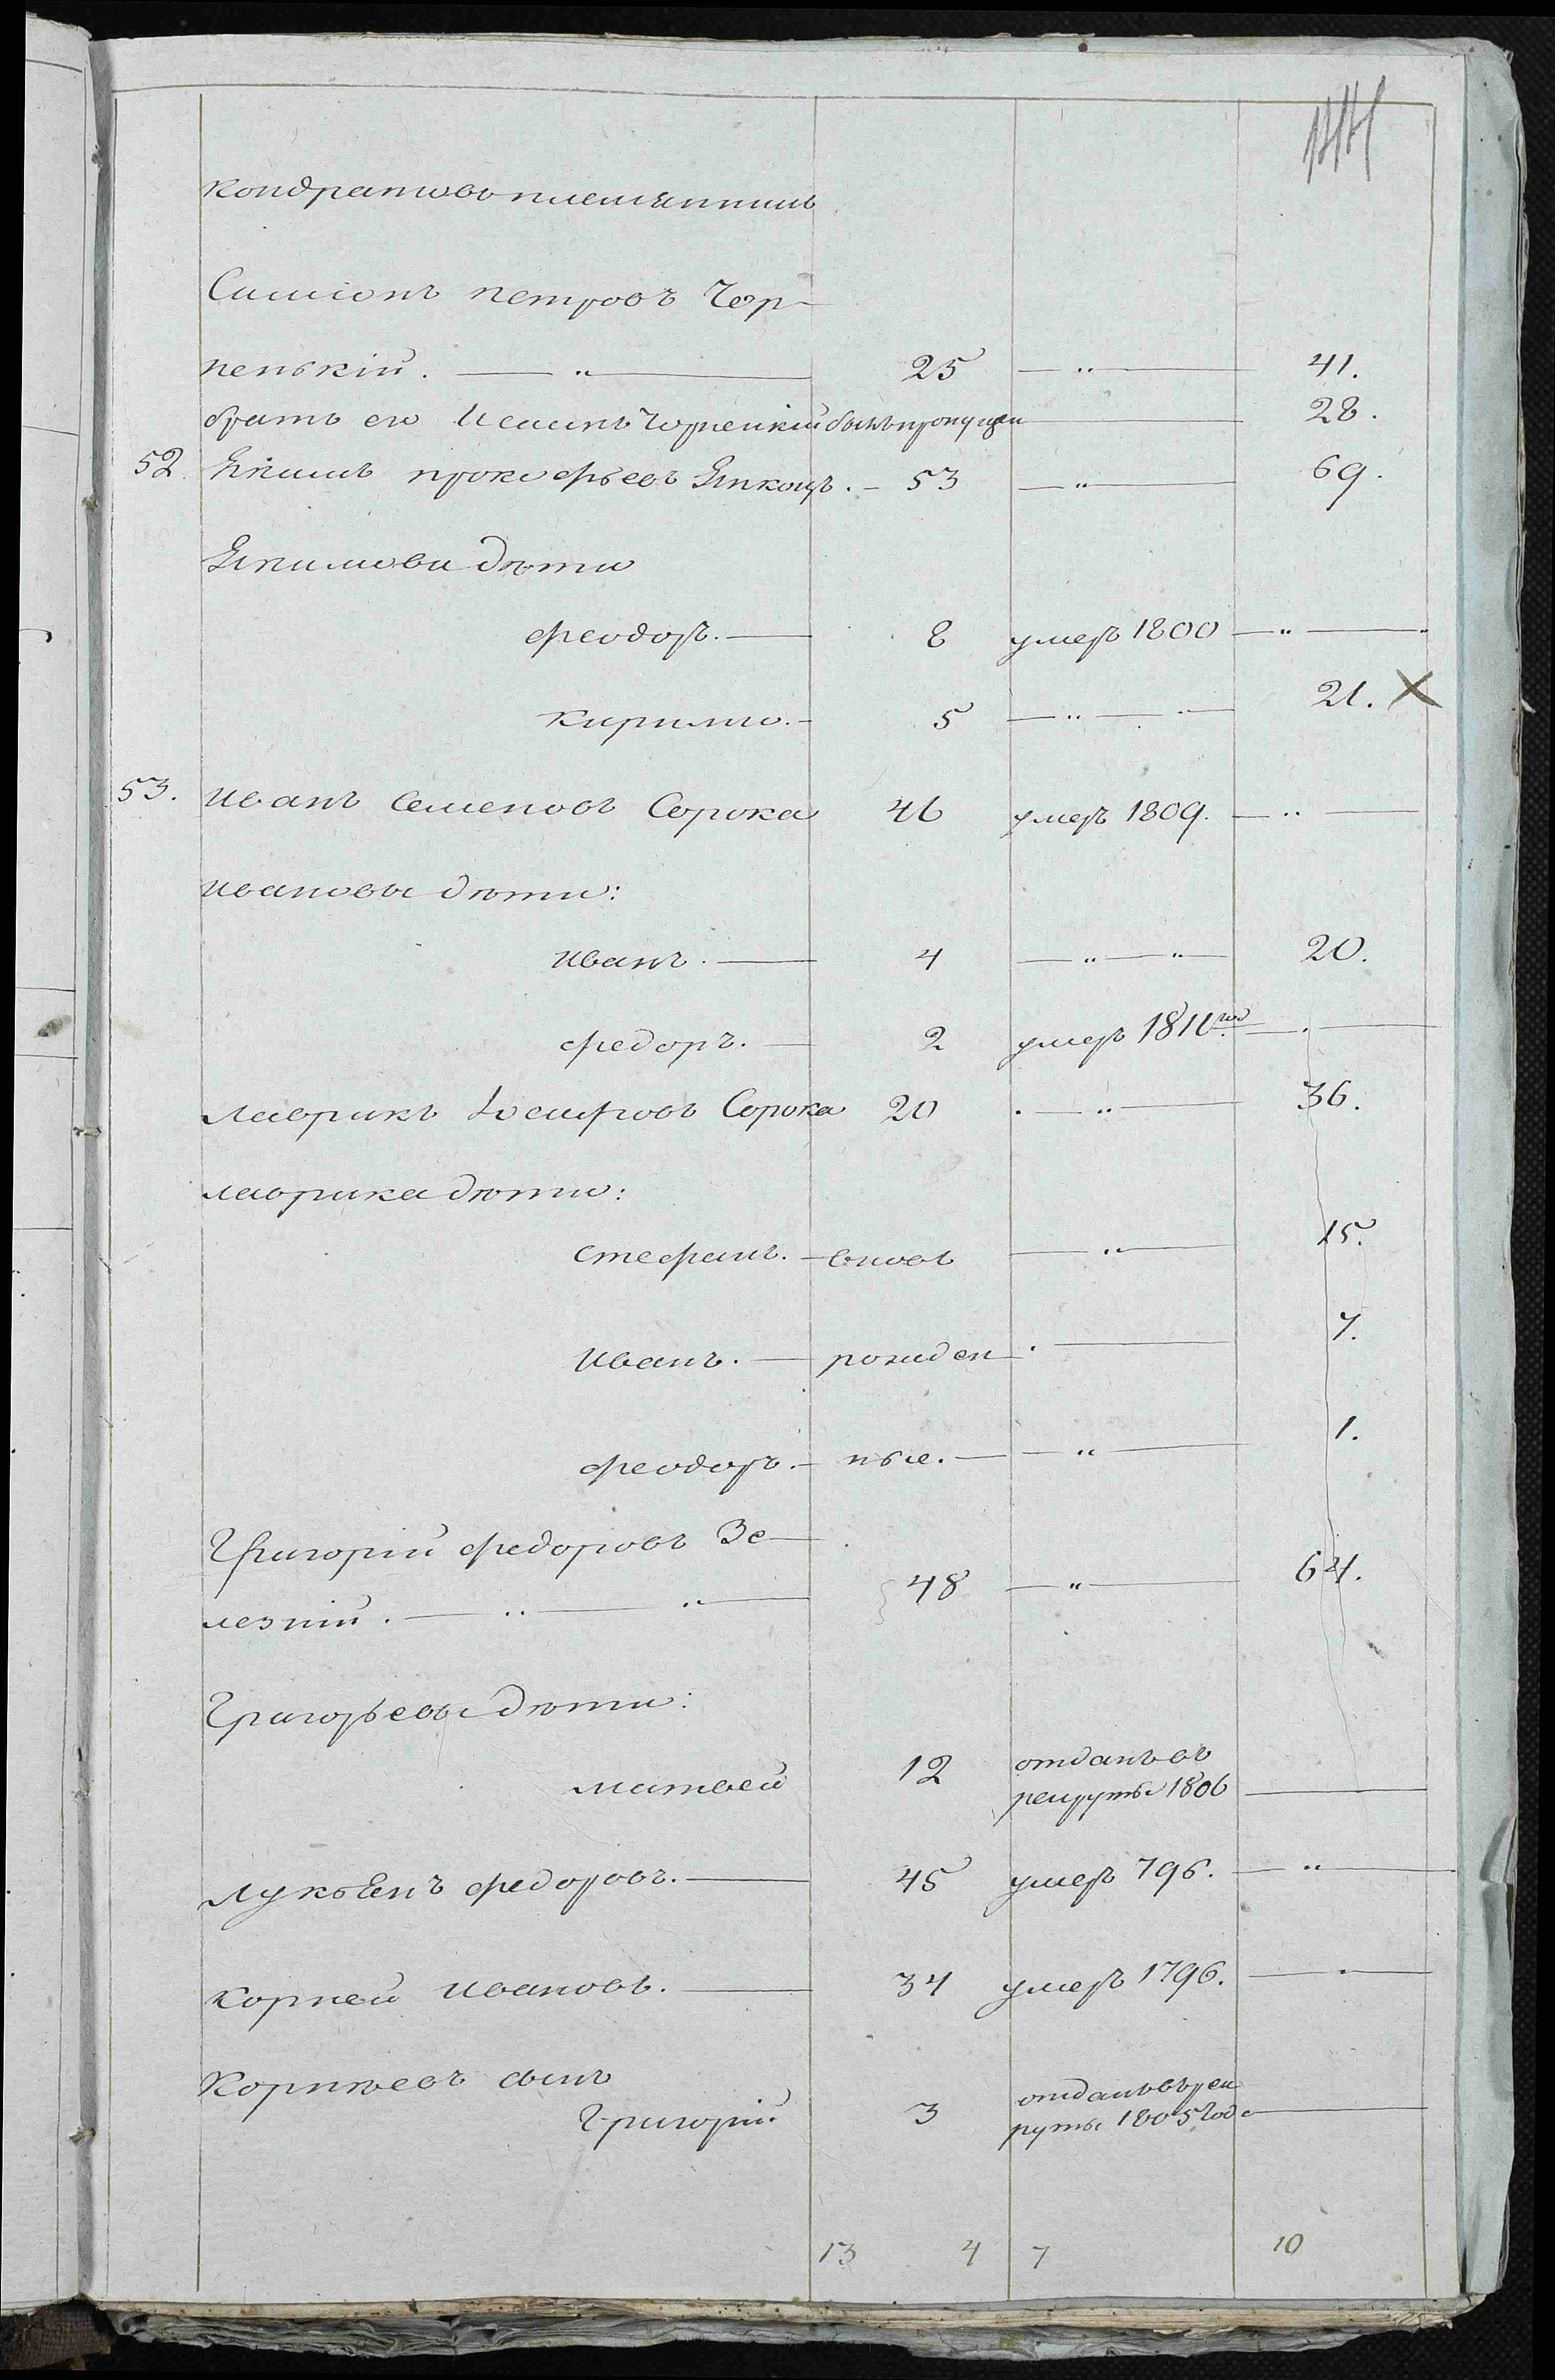 кондратовъ племянникъ
Симіонъ петровъ Чер-
ненькій. 25 41.
братъ его Черненкій былъ пропущен 28.
52. Якимъ прокофьевъ 53 69.
Якимовы дѣти
феодоръ. 8 умеръ 1800
кирило. 5 21. X
53. иванъ Семеновъ Сорока 46 умеръ 1809.
ивановы дѣти:
иванъ. 4 20.
федоръ. 2 умеръ 1811го
лаврикъ Сорока 20 36.
лаврика дѣти:
стефанъ. вновь 15.
иванъ. рожден 7.
феодоръ. ные. 1.
Григорій федоровъ Зе-
лезній. 48 64.
Григорьевы дѣти:
матвей 12 отданъ въ
рекруты 1806
лукьянъ федоровъ. 45 умеръ 796.
корней ивановъ. 34 умеръ 1796.
корнѣевъ сынъ
Григорій 3 отданъ въ рек
руты 1805 года
13 4 7 10